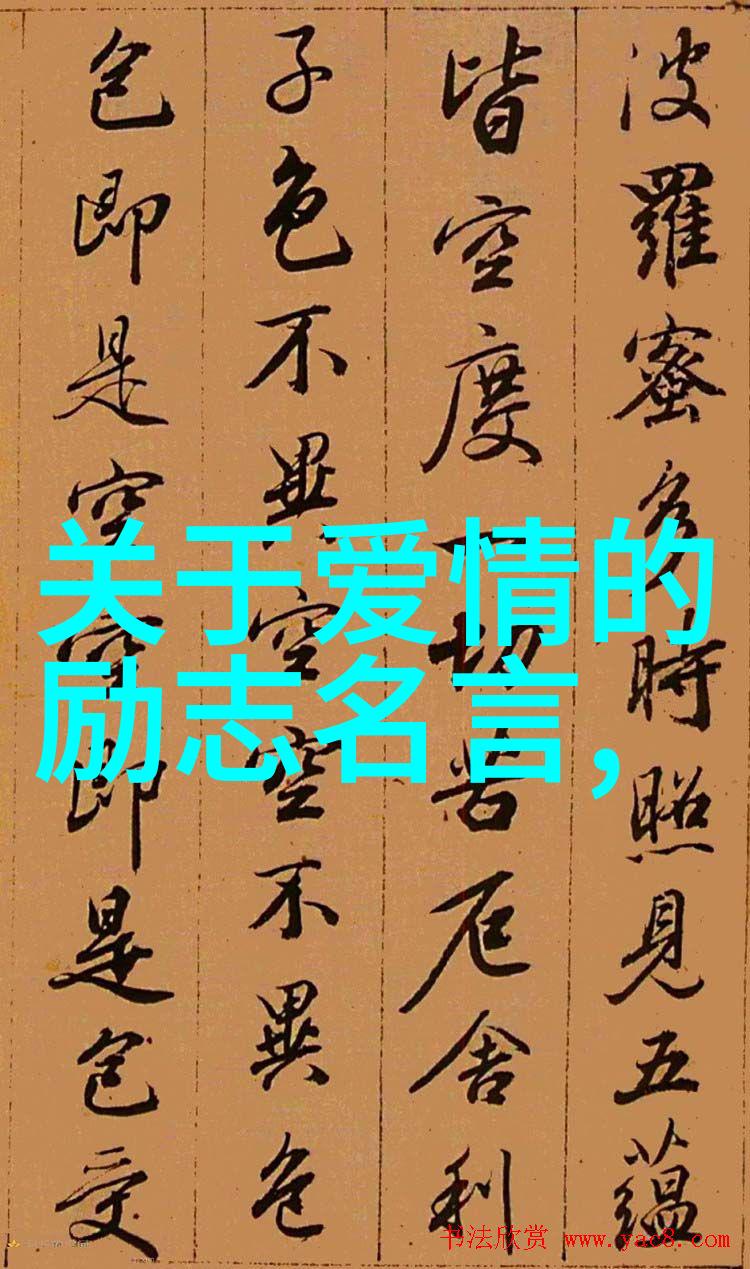 波羅蜜多時照見五蘊
皆空度一切苦厄舍利
子色不異空空不異色
色即是空空即是色受
关于爱情的
励志名言,
书法欣赏 www.yac8.com